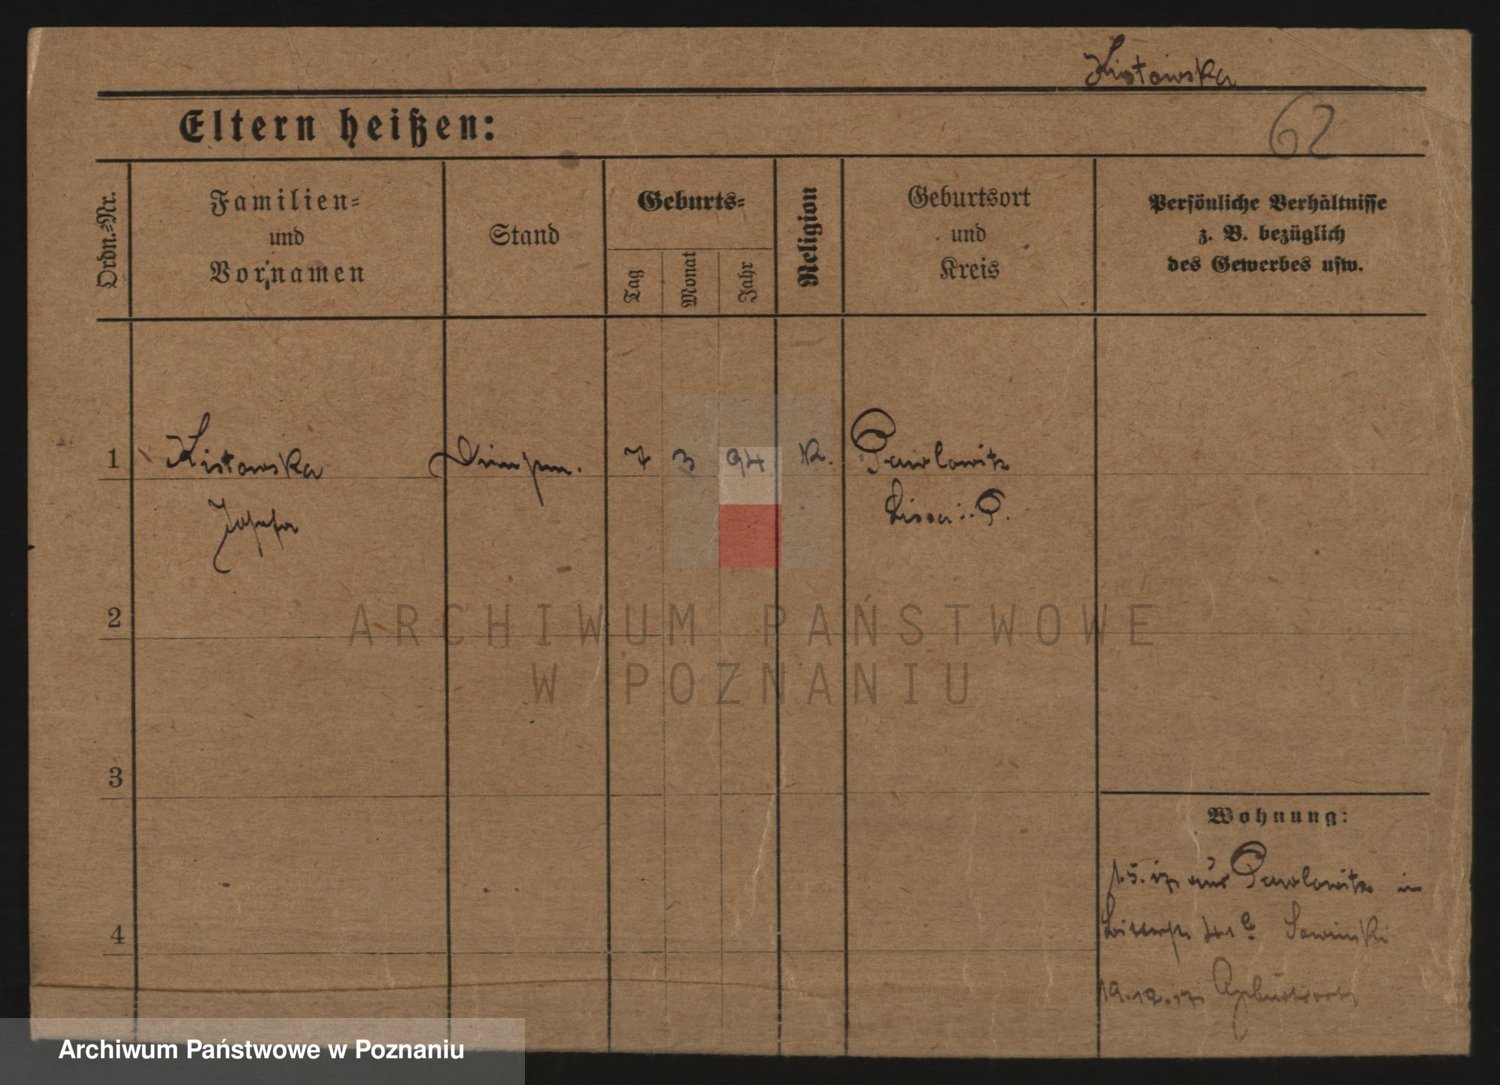 Kistowska
62
Eltern heißen:
Ordn.-Nr.
Familien-
und
Vornamen
Stand
Geburts-
Tag
Monat
Jahr
Religion
Geburtsort
und
Kreis
Persönliche Verhältnisse
z. B. bezüglich
des Gewerbes usw.
1 Kistowska 7 3 94 K. Pawlowitz
Josefa Lissa i. P.
2
ARCHIWUM PAŃSTWOWE
W POZNANIU
3
Wohnung:
aus Pawlowitz in
4
Sowinski
19.12.17 Geburtsort
Archiwum Państwowe w Poznaniu